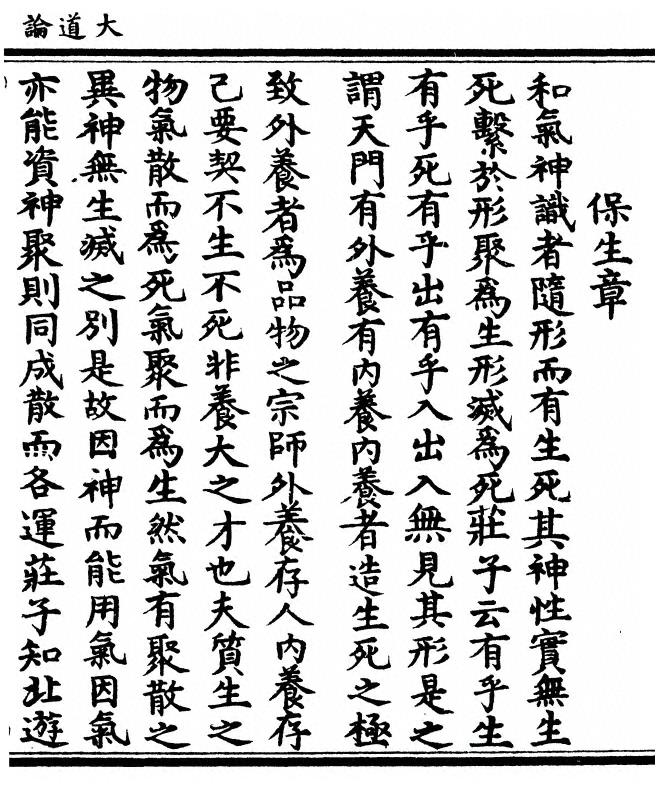 大道論
保生章
和氣神識者隨形而有生死其神性實無生
死繫於形聚爲生形滅爲死莊子云有乎生
有乎死有乎出有乎入出入無見其形是之
謂天門有外養有內養內養者造生死之極
致外養者爲品物之宗師外養存人內養存
己要契不生不死非養大之才也夫質生之
物氣散而爲死氣聚而爲生然氣有聚散之
異神無生滅之別是故因神而能用氣因氣
亦能資神聚則同成散而各運莊子知北遊